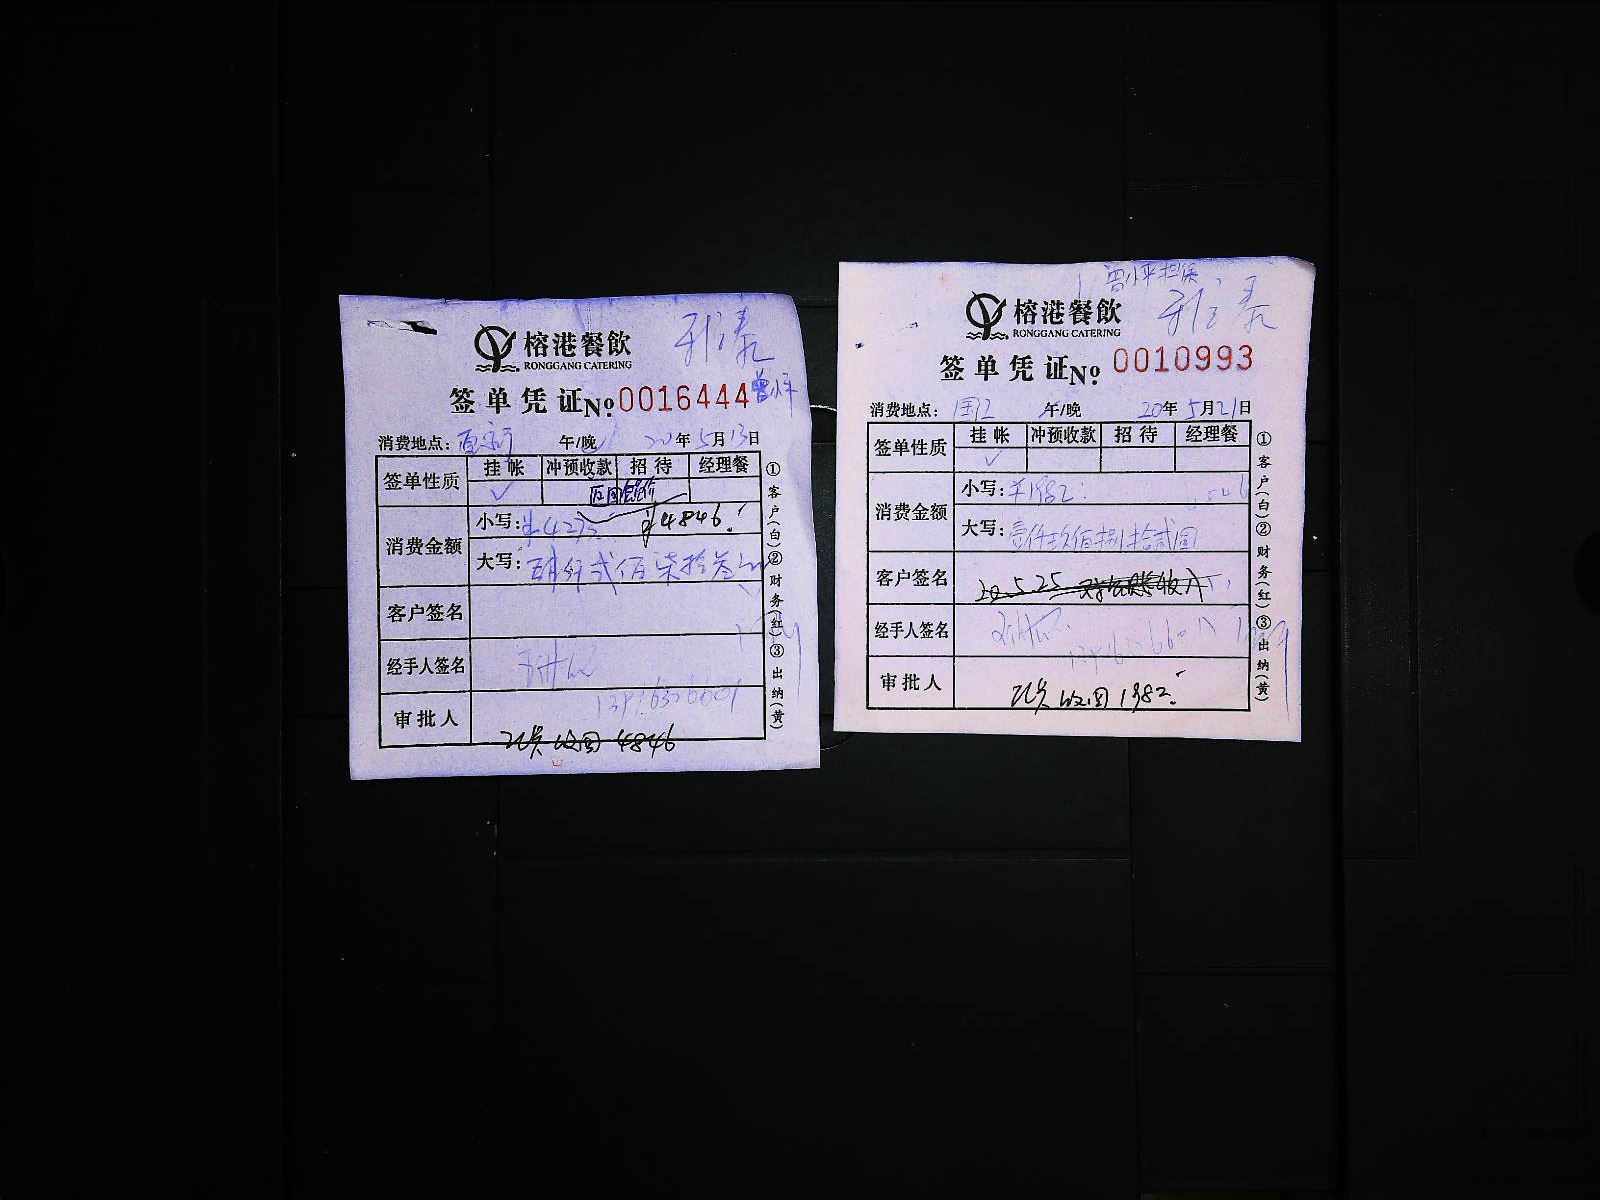 榕港餐飲
RONGGANG CATERING
签单凭证 No 0016444
曾小平
消费地点: 午/晚 20年5月13日
签单性质 挂帐 冲预收款 招待 经理餐
✓
消费金额 小写: ¥4273 ¥4846
大写: 肆仟贰佰柒拾叁元
客户签名
经手人签名
审批人
收回 4846
①客户(白)②财务(红)③出纳(黄)
曾小平担保
榕港餐飲
RONGGANG CATERING
签单凭证 No 0010993
消费地点: 午/晚 20年5月21日
签单性质 挂帐 冲预收款 招待 经理餐
✓
消费金额 小写: ¥1982
大写: 壹仟玖佰捌拾贰圆
客户签名 20.5.25
经手人签名
审批人 收回 1982
①客户(白)②财务(红)③出纳(黄)